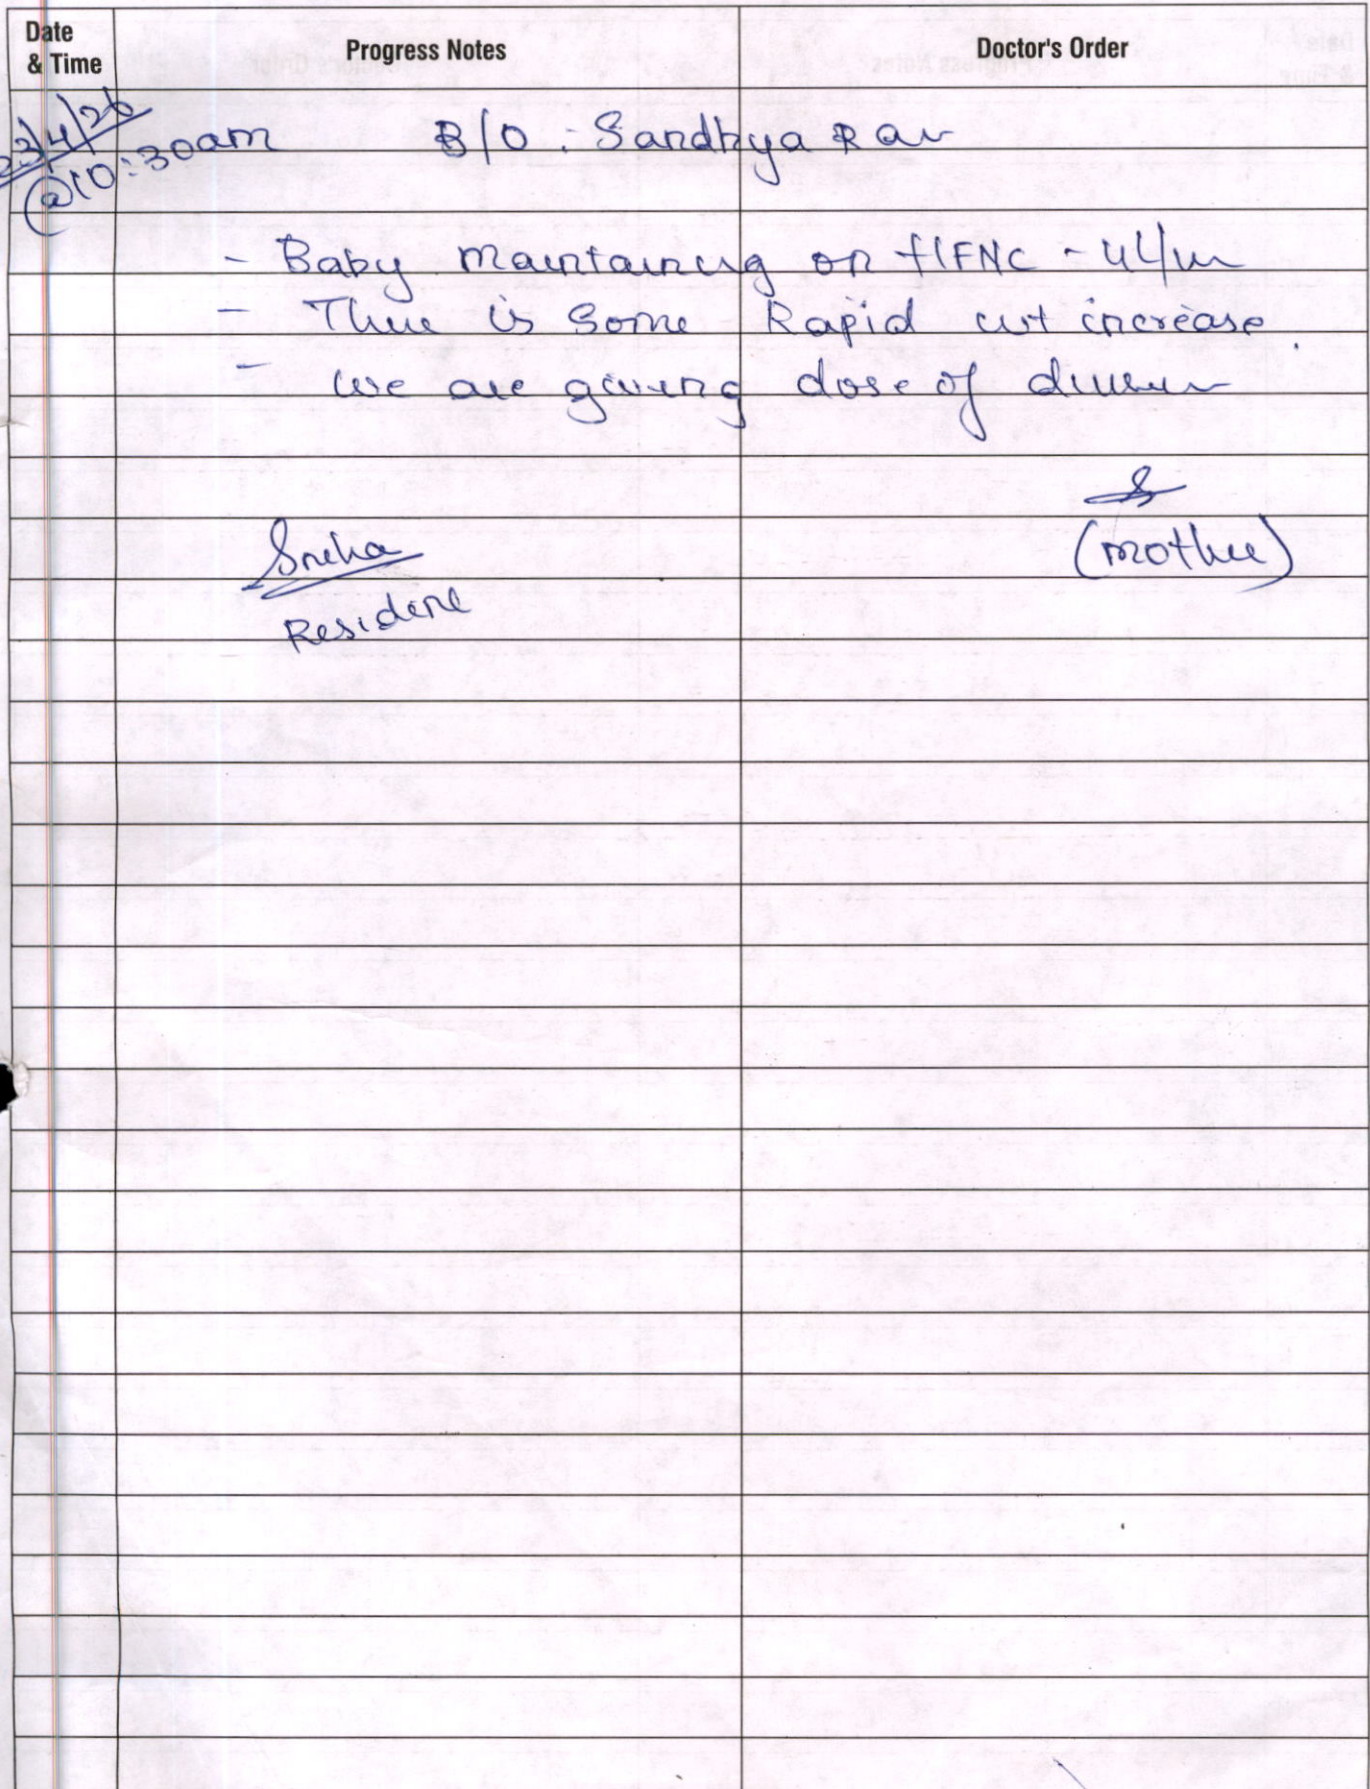 Date
& Time
Progress Notes
Doctor's Order
23/4/26
@10:30am
B/O: Sandhya Rav
- Baby maintaining on HFNC - 4L/m
- There is some Rapid wt increase.
- we are giving dose of
Sneha
Resident
(mother)